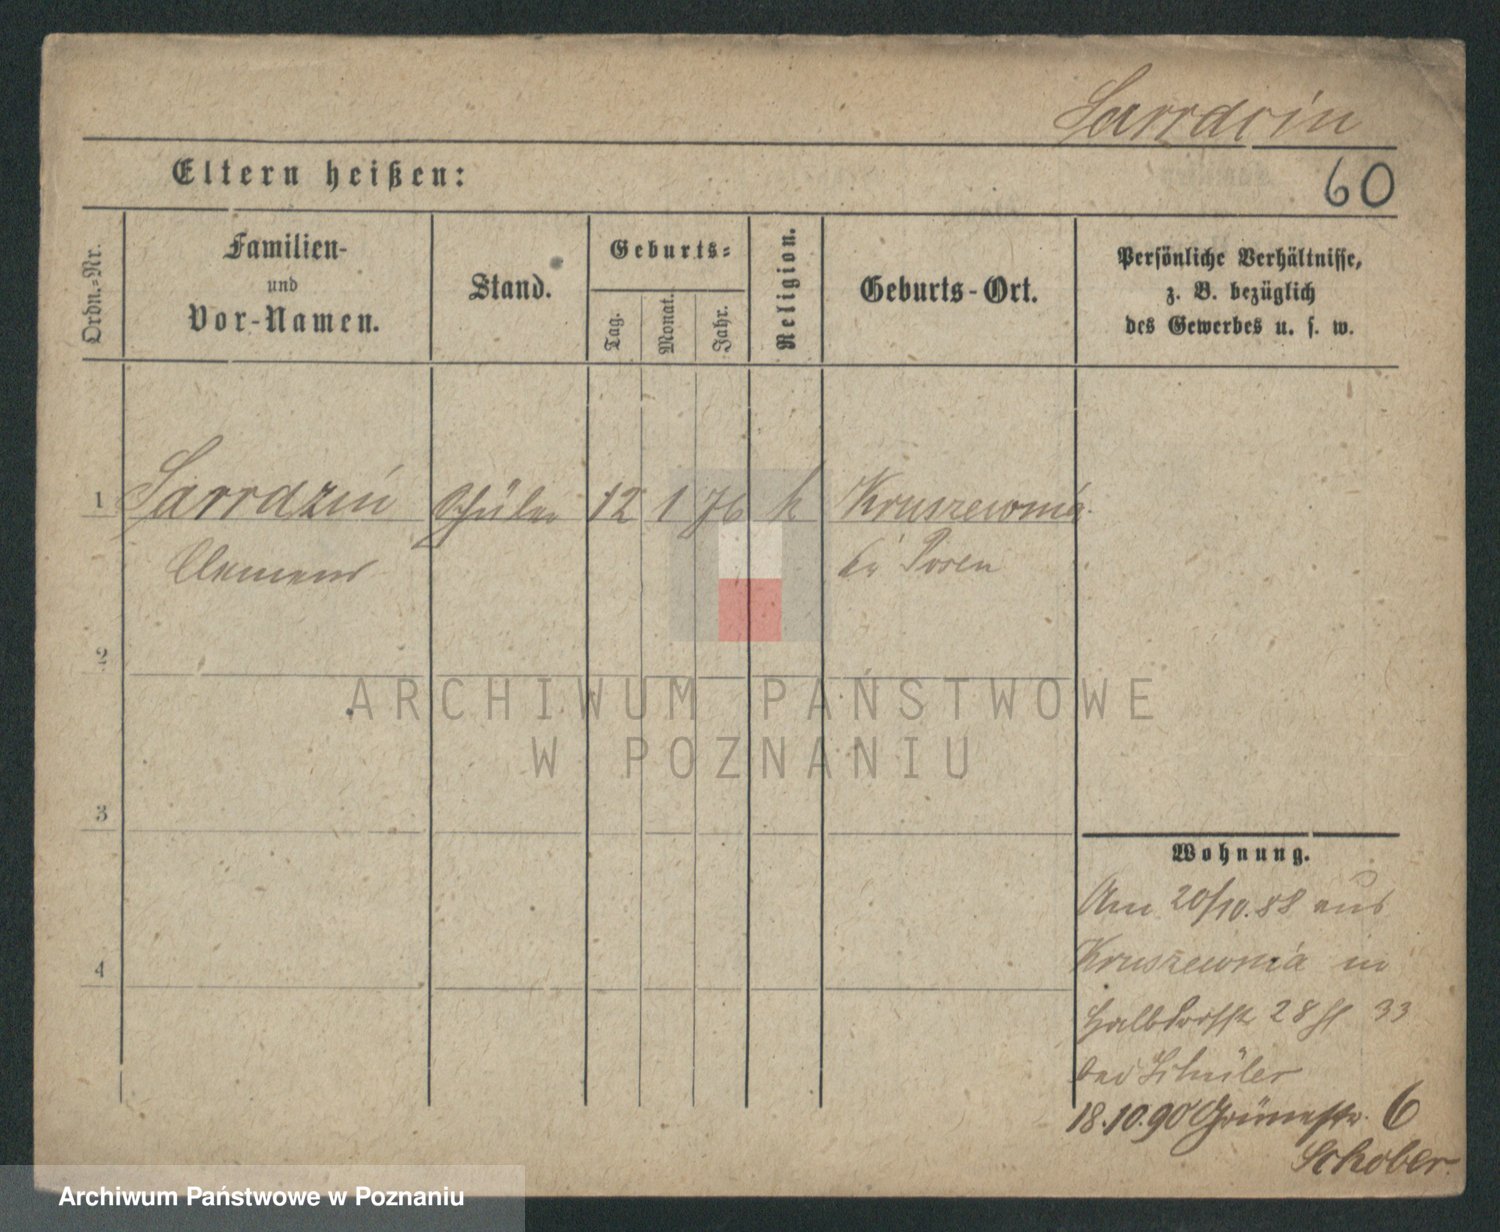 Sarrdzin
60
Eltern heißen:
Ordn.-Nr.
Familien-
und
Vor-Namen.
Stand.
Geburts-
Tag.
Monat.
Jahr.
Religion.
Geburts-Ort.
Persönliche Verhältnisse,
z. B. bezüglich
des Gewerbes u. s. w.
1 Sarrdzin Schüler 12 1 76 k Kruszewnia
Clemens bei Posen
2
3
4
Wohnung.
Am 20/10.88 aus
Kruszewnia in
Halbdorfstr 28 33
bei Schüler
18.10.90 Grünestr. 6
Schober
ARCHIWUM PAŃSTWOWE
W POZNANIU
Archiwum Państwowe w Poznaniu